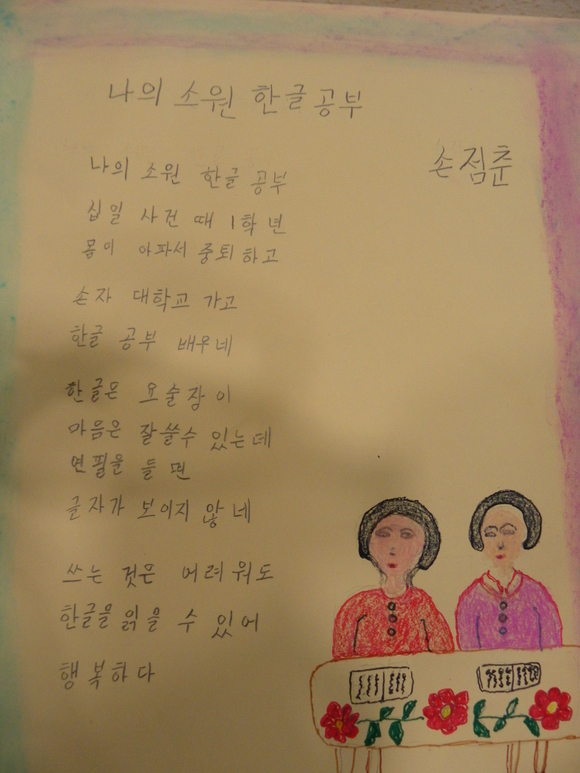 나의 소원 한글 공부
손점춘
나의 소원 한글 공부
십일 사건 때 1학년
몸이 아파서 중퇴하고
손자 대학교 가고
한글 공부 배우네
한글은 요술장이
마음은 잘 쓸수 있는데
연필을 들면
글자가 보이지 않네
쓰는 것은 어려워도
한글을 읽을 수 있어
행복하다